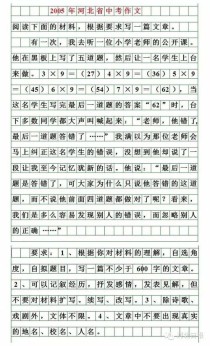 2005 年河北省中考作文
阅读下面的材料，根据要求写一篇文章。
有一次，我去听一位小学老师的公开课。
他在黑板上写了五道题，然后让一名学生上台
来做。3×9＝（27）4×9＝（36）5×9
＝（45）6×9＝（54）7×9＝（62）。当
这名学生写完最后一道题的答案“62”时，台
下多数同学都大声叫喊起来，“老师，他错了，
最后一道题答错了……”我满以为那位老师会
马上纠正这名学生的错误，没想到他却说了一
段让我至今记忆犹新的话，他说：“最后一道
题是答错了，可大家为什么只说他答错的这道
题，而不说他前面四道题都做对了呢？看来，
我们是多么容易发现别人的错误，而忽略别人
的正确……”
要求：1、根据你对材料的理解，自选角
度，自拟题目，写一篇不少于 600 字的文章。
2、可以记叙经历，抒发感情，发表见解，但
不要对材料扩写、续写、改写。3、除诗歌、
戏剧外，文体不限。4、文章中不要出现真实
的地名、校名、人名。